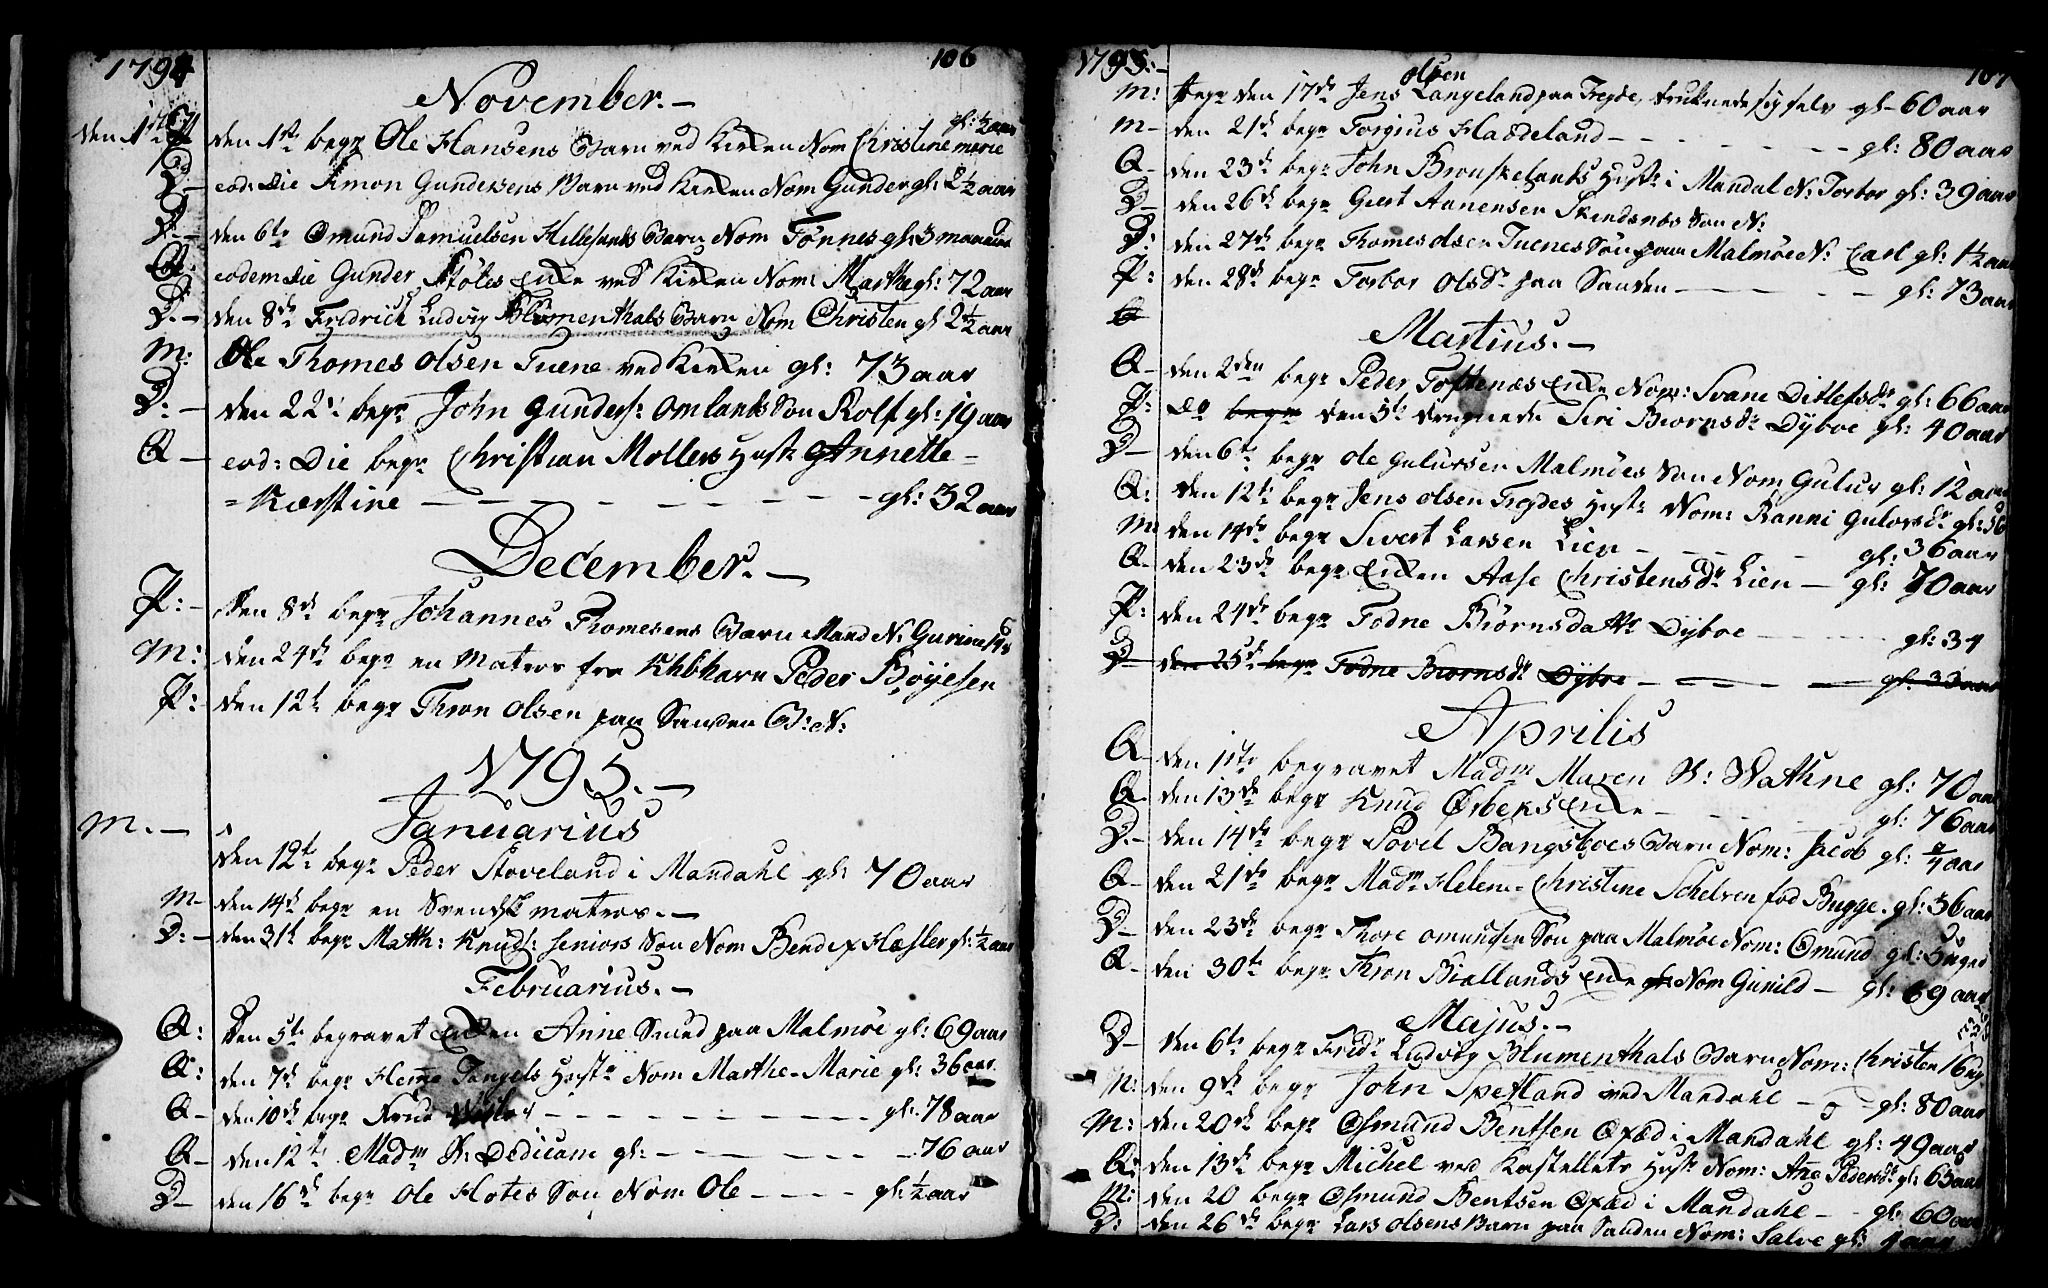 1794
106
November.-
gl: ½ aar
den 1st begr Ole Hansens Barn ved Kirken Nom Christine marie
D- eod: die Simon Gundersens Barn ved Kirken Nom Gunder gl: 2½ aar
D.- den 6te Omund Samuelsen Hillesunds Barn Nom Tønnes gl: 3 maaneder
Q: eodem die Gunder Støles Enke ved Kirken Nom: Marthe gl: 72 aar
D.- den 8de Fredrich Ludvig Blumenthals Barn Nom Christen gl 2½ aar
M: Ole Thomes Olsen Tuene ved Kirken gl: 73 aar
D:- den 22d begr John Gunders: Omlants Søn Rolf gl: 19 aar
Q- eod: Die begr Christian Mollers Hustr Annette=
=Kierstine - - - - - - gl: 32 aar
December.-
P:- den 8de begr Johannes Thomesens Barn Mand N: Gurine
M: den 24de begr en Matros fra Khbhavn Peder Bøyesen
P: den 12te begr Thron Olsen paa Sanden B: N:
1795.-
Januarius
M.- den 12te begr Peder Stoveland i Mandahl gl: 70 aar
M- den 14de begr en Svensk matros.-
D:- den 31te begr Matth: Knuds: seniors Søn Nom Bendix Hæsler gl: ½ aar
Februarius.-
Q: Den 5te begravet Enken Anne Smed paa Malmøe gl: 69 aar
Q: den 7de begr Heme Tangels Hustr Nom Marthe-Marie gl: 36 aar.
Q- den 10de begr Frue - - - - - gl: 78 aar
Q- den 12te Madm S: Dedicam gl: - - - - - 76 aar
D- den 16de begr Ole Flotes Søn Nom Ole - - - - gl: ½ aar
1795:-
107
olsen
M: begr den 17de Jens Langeland paa Tregde, druknede sig selv gl- 60 aar
M- den 21de begr Torgius Haddeland - - - - - - gl: 80 aar
Q- den 23de begr John Brouskelands Hustr i Mandal N: Torbor gl: 39 aar
D- den 26de begr Giert Aanensen Skindsnes Søn N:
D: den 27de begr Thomes Olsen Tuenes Søn paa Malmøe N: Carl gl: 1½ aar
P: den 28de begr Torbor Olsdr paa Sanden - - - - gl: 73 aar
Martius.-
Q- den 2den begr Peder Toftenæs Enke Nom: Svane Ditlefsdr gl: 66 aar
P: do begr den 5te druknede Siri Biørnsdr Dyboe gl: 40 aar
D- den 6te begr Ole Gulufsen Malmøes Søn Nom Guluv gl: 12 aar
Q: den 12te begr Jens Olsen Tregdes Hustr Nom: Ranni Gulovsdr gl: 56
M- den 14de begr Sivert Larsen Lien - - - - - gl: 36 aar
Q- den 23de begr Enken Aase Christensdr Lien - gl: 70 aar
P: den 24de begr Todne Biørnsdatter Dyboe - - - - gl: 34
D- den 25de begr Todne Biørnsdr Dyboe - - - - gl: 33 aar
Aprilis
Q- den 1ste begravet Madm Maren S: Wathne gl: 70 aar
Q- den 13de begr Knud Øybeks Enke - - - - - gl: 76 aar
D.- den 14de begr Povel Bangsboes Barn Nom: Jacob gl: ¾ aar
Q- den 21de begr Madm Helene-Christine Schelven fød Bugge. gl: 36 aar
D- den 23de begr Thore Omundsen Søn paa Malmøe Nom: Omund gl: 5 uger
Q- den 30te begr Thron Biellands Enke Nom Gunild - gl: 69 aar
Majus.-
D- den 6te begr Fridr Ludvig Blumenthals Barn Nom: Christen 16
M: den 9de begr John Spetland ved Mandahl - - gl: 80 aar
M: den 20de begr Osmund Bentsen Opæd i Mandahl gl: 49 aar
Q: den 13de begr Michel ved Kastellets Hustr Nom: Ane Pedersdr gl: 63 aar
M: den 20 begr Osmund Bentsen Opæd i Mandahl - - gl: 60 aar
D: den 26de begr Lars Olsens Barn paa Sanden Nom: Salve gl: 1 aar